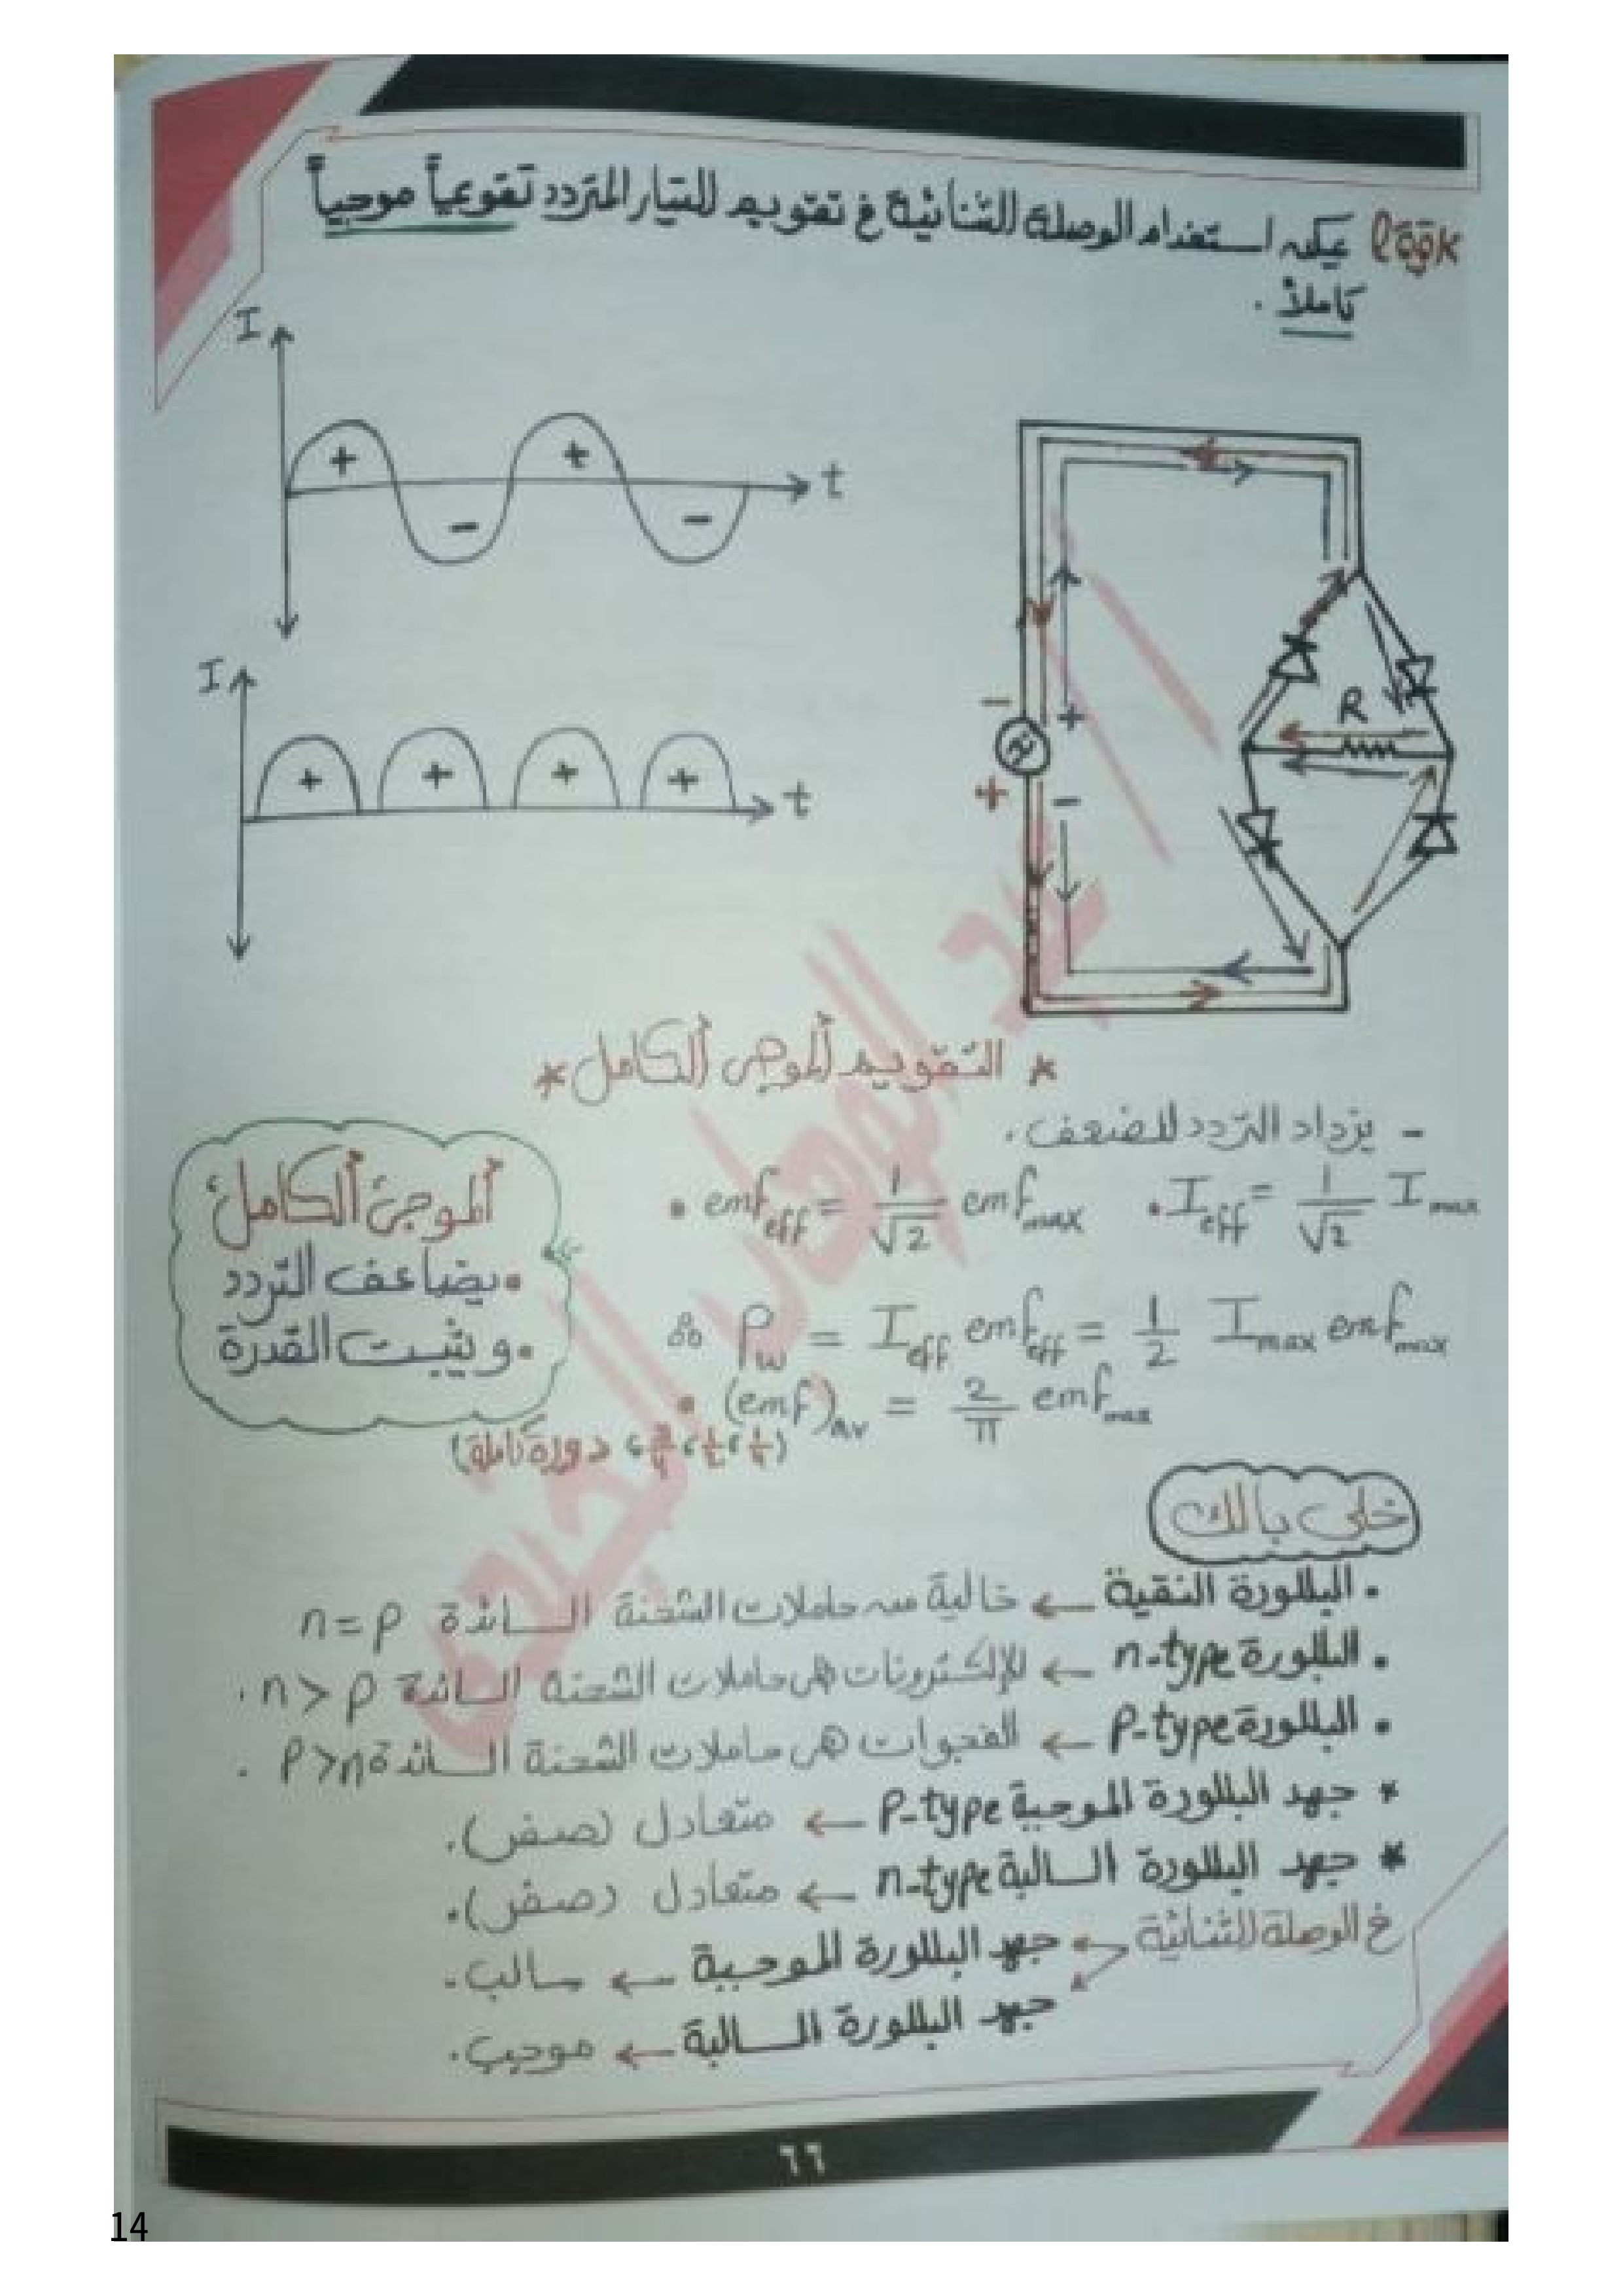 Look يمكن استخدام الوصلة الثنائية في تقويم التيار المتردد تقويمياً موجياً
كاملاً .
I
+
+
-
-
t
I
+
+
+
+
t
R
-
+
+
-
* التقويم الموجى الكامل *
- يزداد التردد للضعف .
• emf eff = 1/√2 emf max • I eff = 1/√2 I max
الموجى الكامل
• يضاعف التردد
• ويثبت القدرة
∴ Pw = I eff emf eff = 1/2 I max emf max
• (emf)av = 2/π emf max
(1/4 ، 1/2 ، 3/4 ، دورة كاملة)
خلى بالك
• البللورة النقية ← خالية من حاملات الشحنة السائدة n = p
• البللورة n-type ← الإلكترونات هى حاملات الشحنة السائدة n > p .
• البللورة P-type ← الفجوات هى حاملات الشحنة السائدة P > n .
* جهد البللورة الموجبة P-type ← متعادل (صفر) .
* جهد البللورة السالبة n-type ← متعادل (صفر) .
في الوصلة الثنائية ← جهد البللورة الموجبة ← سالب .
جهد البللورة السالبة ← موجب .
٦٦
14